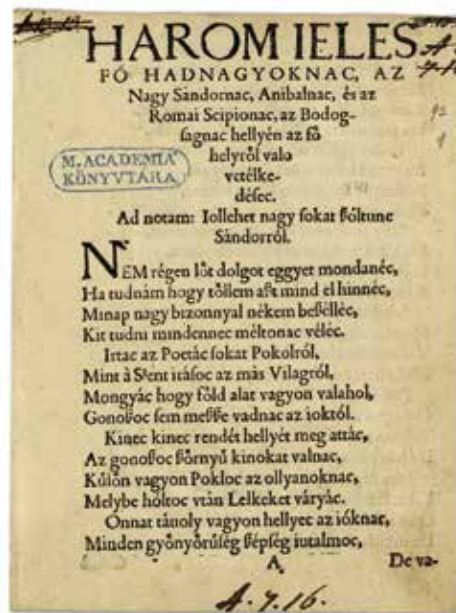 HAROM IELES
FŐ HADNAGYOKNAC, AZ
Nagy Sándornac, Anibalnac, és az
Romai Scipionac, az Bodog-
ſagnac hellyén az fő
helyről valo
vetélke-
déſec.
M. ACADEMIA
KÖNYVTÁRA
Ad notam: Iollehet nagy ſokat ßóltunc
Sándorról.
NEM régen lőt dolgot eggyet mondanéc,
Ha tudnám hogy től lem aßt mind el hinnéc,
Minap nagy bizonnyal nékem beßélléc,
Kit tudni mindennec méltonac véléc.
Irtac az Poetác ſokat Pokolról,
Mint à Sᵉent iráſoc az más Világról,
Mongyác hogy főld alat vagyon valahol,
Gonoßoc ſem meßße vadnac az ioktól.
Kinec kinec rendét hellyét meg attác,
Az gonoßoc ßőrnyű kinokat valnac,
Kűlőn vagyon Pokloc az ollyanoknac,
Melybe hóltoc vtán Lelkeket váryác.
Onnat tàuoly vagyon hellyec az ióknac,
Minden győnyőrűſég ßépſég iutalmoc,
A. De va-
A. 7. 16.